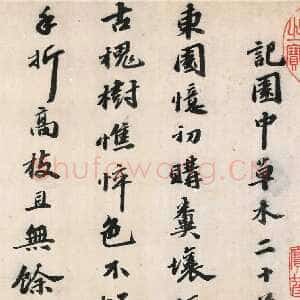 記園中草木二十
東園憶初購糞壤
古槐樹憔悴色不
手折高枝且無餘
之寶
shufawang.cn